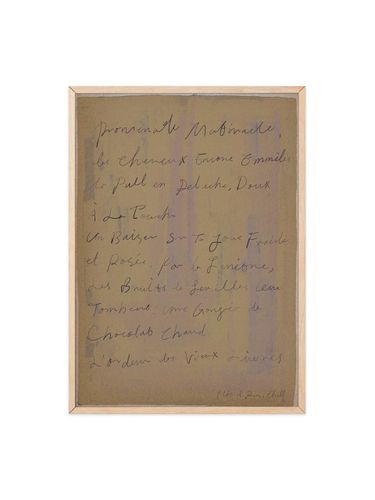 Promenade Matinale,
les Cheveux Encore Emmêlés
Le Pull en Peluche, Doux
À La Touche
Un Baiser Sur Ta Joue Froide
et Rosée. Par le
Les Bruits de feuilles
Tombent. Une Gorgée de
Chocolat Chaud
L'odeur des Vieux